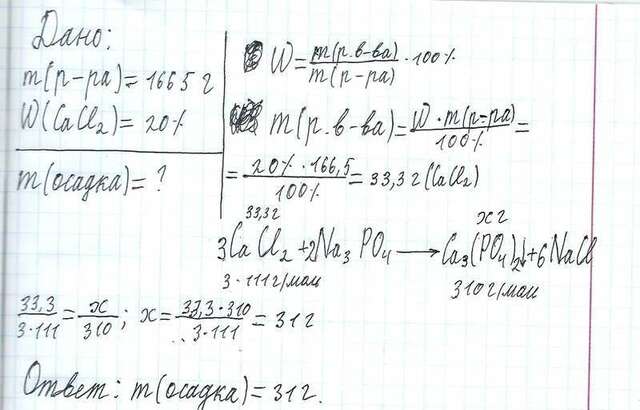 Дано:
m(р-ра)=166,5 г
W(CaCl₂)=20%
m(осадка)=?
W=m(р.в-ва)/m(р-ра)·100%
m(р.в-ва)=W·m(р-ра)/100%=
=20%·166,5/100%=33,3г(CaCl₂)
33,3г x г
3CaCl₂+2Na₃PO₄→Ca₃(PO₄)₂↓+6NaCl
3·111г/моль 310г/моль
33,3/3·111=x/310; x=33,3·310/3·111=31г
Ответ: m(осадка)=31г.